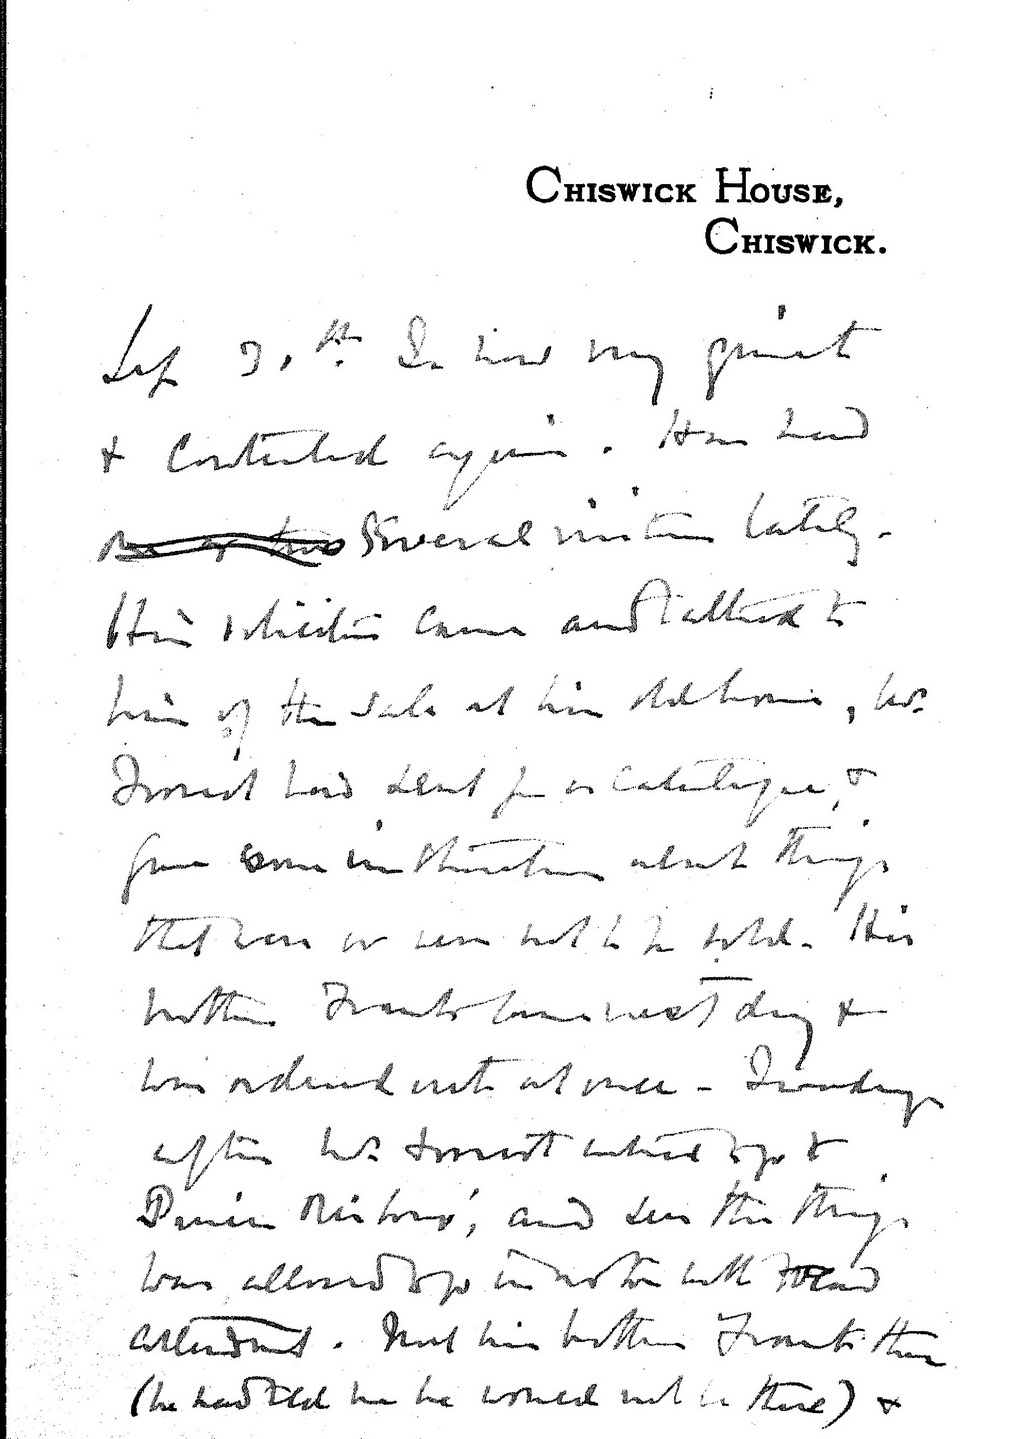 CHISWICK HOUSE,
CHISWICK.
Sep 30th. Is now very quiet
& Contented again. Has had
one or two Several visitors lately.
His solicitor came and talked to
him of the sale at his old home, Mr.
had sent for a Catalogue, &
gave some instructions about things
that were or were not to be sold. His
brother Frank came next day &
was ordered out at once - Two days
after Mr. asked to go to
and see the things
was allowed to go in motor with Head
Attendant. Met his brother Frank there
(he had told me he would not be there) &